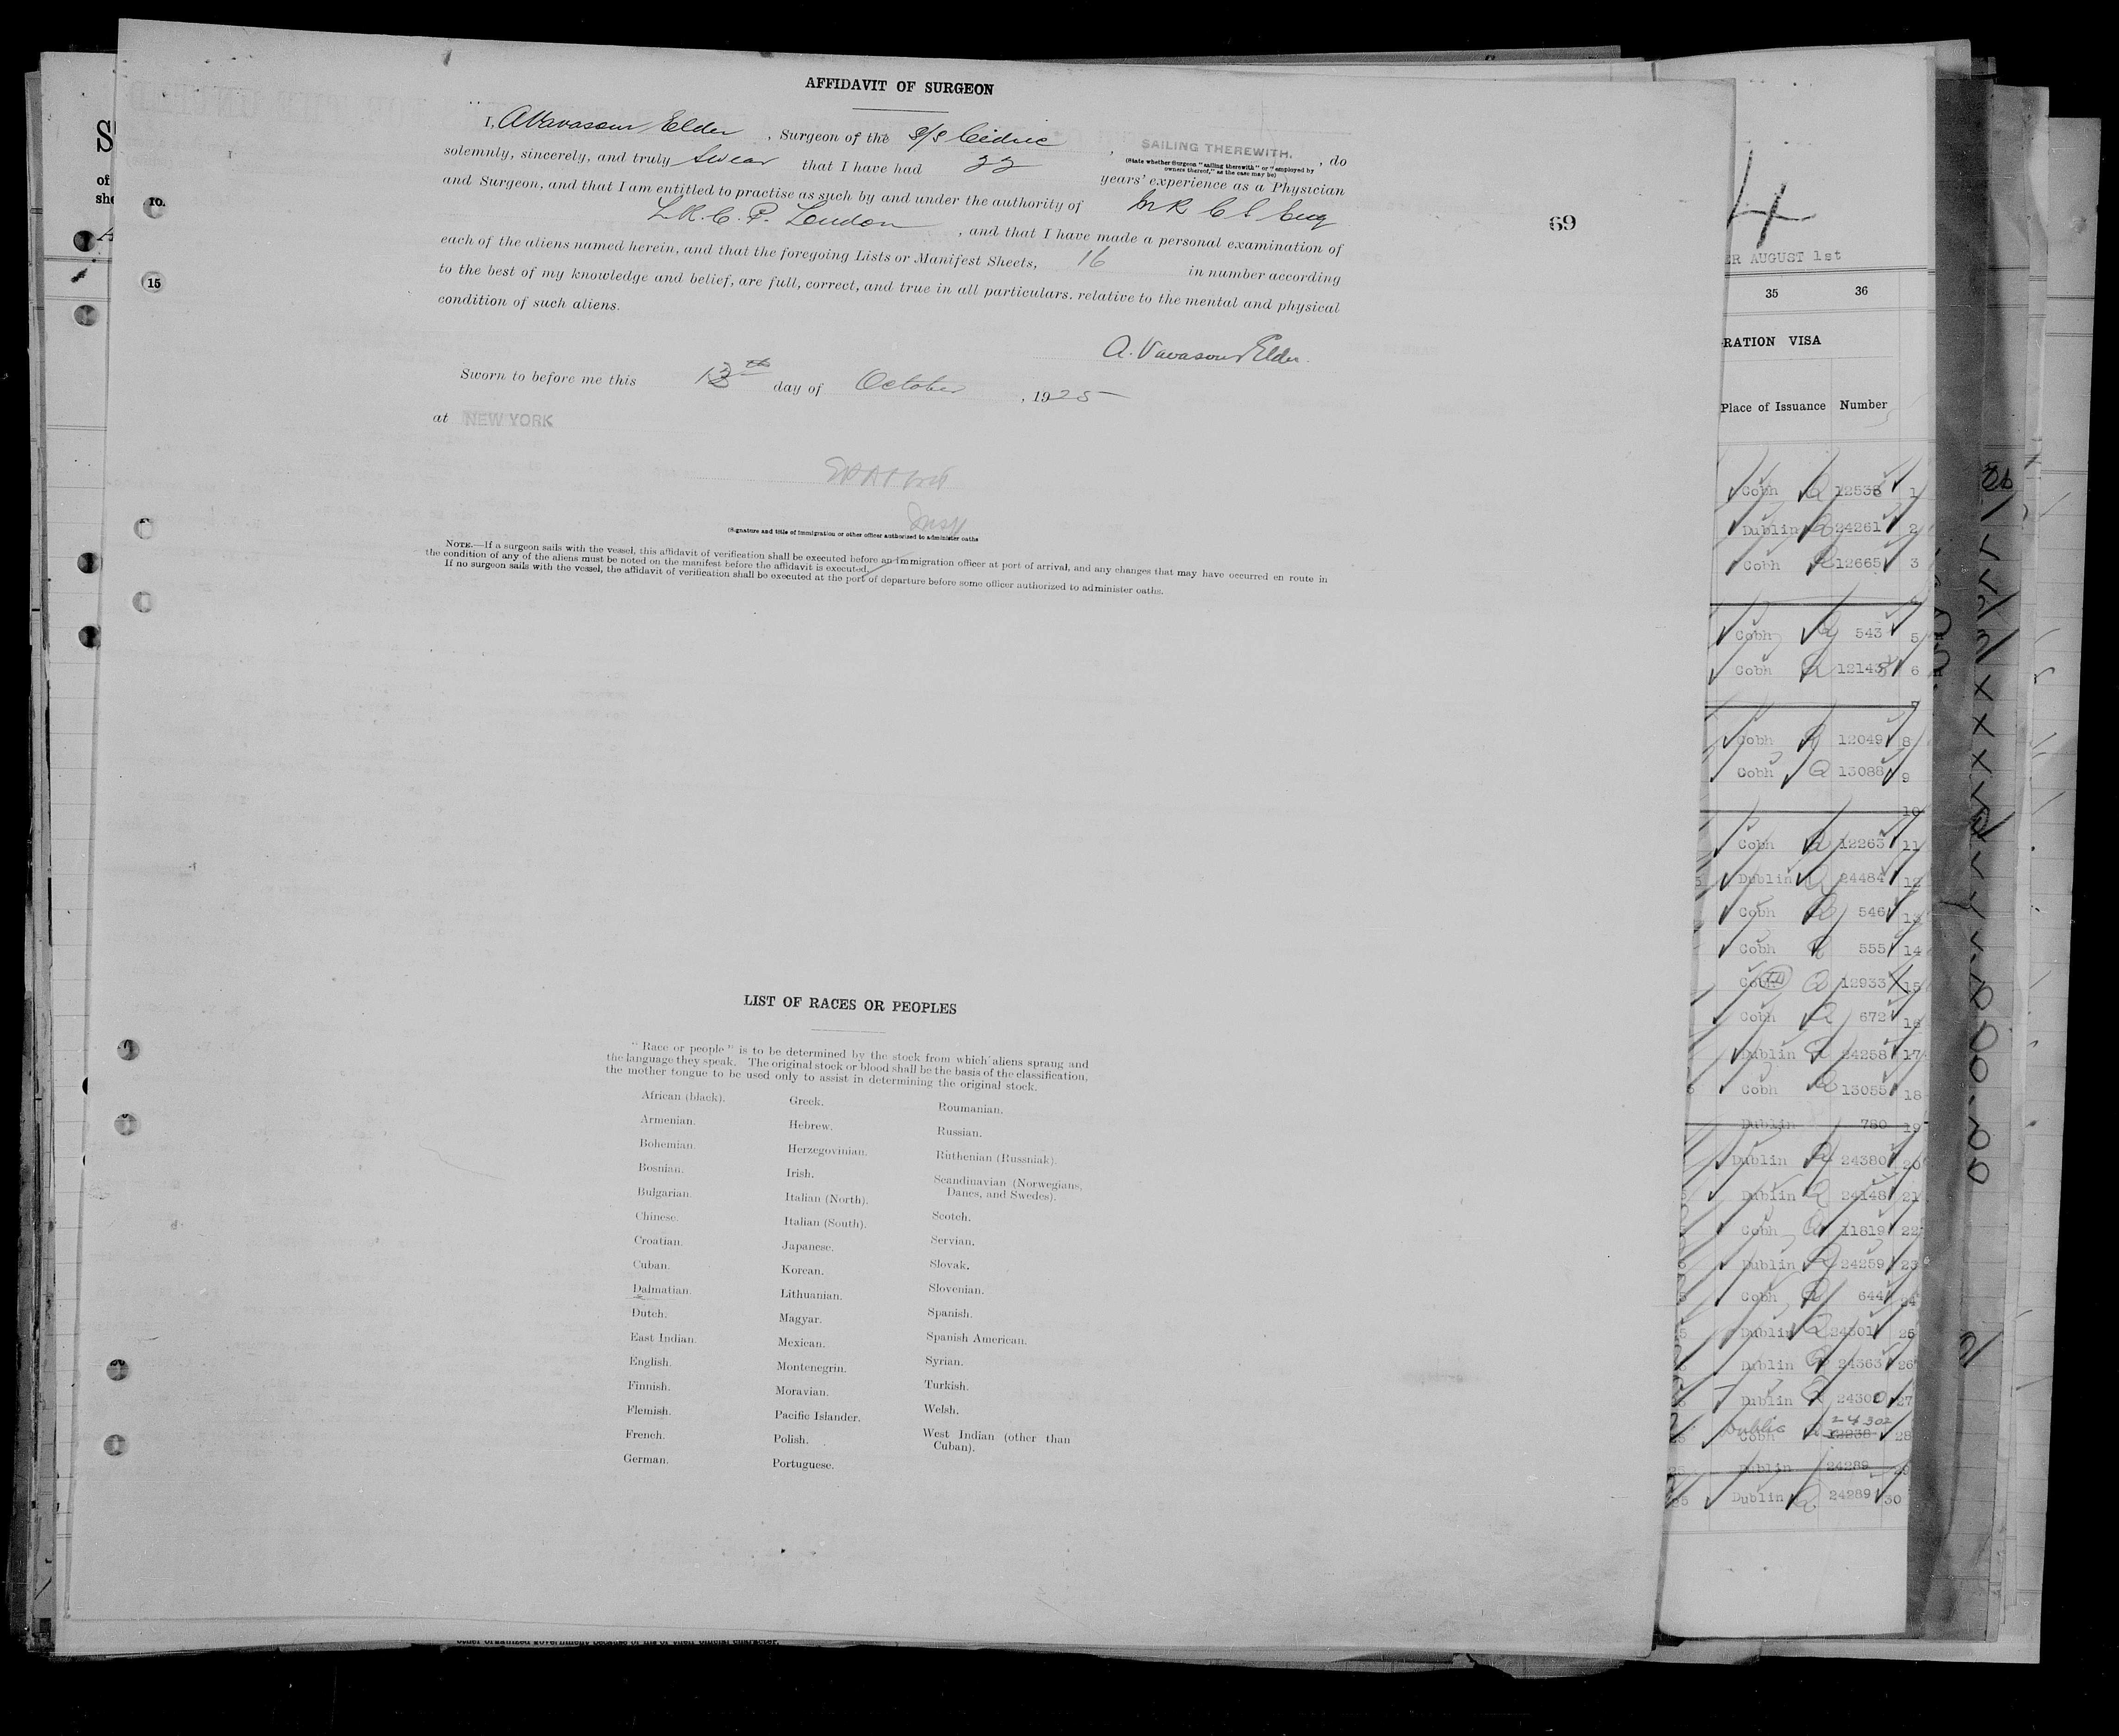 AFFIDAVIT OF SURGEON
I, A Vavasour Elder, Surgeon of the S/S Cedric, SAILING THEREWITH., do
(State whether Surgeon "sailing therewith" or "employed by
owners thereof," as the case may be)
solemnly, sincerely, and truly Swear that I have had 22 years' experience as a Physician
and Surgeon, and that I am entitled to practise as such by and under the authority of M R C S Eng
L.R.C.P. London, and that I have made a personal examination of
each of the aliens named herein, and that the foregoing Lists or Manifest Sheets, 16 in number according
to the best of my knowledge and belief, are full, correct, and true in all particulars. relative to the mental and physical
condition of such aliens.
A. Vavasour Elder.
Sworn to before me this 13th day of October, 1925
at NEW YORK
Insp
(Signature and title of immigration or other officer authorized to administer oaths
NOTE.—If a surgeon sails with the vessel, this affidavit of verification shall be executed before an immigration officer at port of arrival, and any changes that may have occurred en route in
the condition of any of the aliens must be noted on the manifest before the affidavit is executed.
If no surgeon sails with the vessel, the affidavit of verification shall be executed at the port of departure before some officer authorized to administer oaths.
69
LIST OF RACES OR PEOPLES
"Race or people" is to be determined by the stock from which aliens sprang and
the language they speak. The original stock or blood shall be the basis of the classification,
the mother tongue to be used only to assist in determining the original stock.
African (black).
Armenian.
Bohemian.
Bosnian.
Bulgarian.
Chinese.
Croatian.
Cuban.
Dalmatian.
Dutch.
East Indian.
English.
Finnish.
Flemish.
French.
German.
Greek.
Hebrew.
Herzegovinian.
Irish.
Italian (North).
Italian (South).
Japanese.
Korean.
Lithuanian.
Magyar.
Mexican.
Montenegrin.
Moravian.
Pacific Islander.
Polish.
Portuguese.
Roumanian.
Russian.
Ruthenian (Russniak).
Scandinavian (Norwegians,
Danes, and Swedes).
Scotch.
Servian.
Slovak.
Slovenian.
Spanish.
Spanish American.
Syrian.
Turkish.
Welsh.
West Indian (other than
Cuban).
10.
15
S
of
she
A
4
ER AUGUST 1st
35 36
RATION VISA
Place of Issuance Number
Cobh Q 12538 1
Dublin Q 24261 2
Cobh Q 12665 3
Cobh Q 543 5
Cobh Q 12143 6
7
Cobh Q 12049 8
Cobh Q 13088 9
10
Cobh Q 12263 11
Dublin Q 24484 12
Cobh Q 546 13
Cobh Q 555 14
Cobh Q 12933 15
Cobh Q 672 16
Dublin Q 24258 17
Cobh Q 13055 18
Dublin 780 19
Dublin Q 24380 20
Dublin Q 24148 21
Cobh Q 11819 22
Dublin Q 24259 23
Cobh Q 644 24
Dublin Q 24301 25
Dublin Q 24363 26
Dublin Q 24300 27
Dublin 24302
Cobh Q 12238 28
Dublin 24289 29
Dublin Q 24289 30
other organized government because of his or their official character.